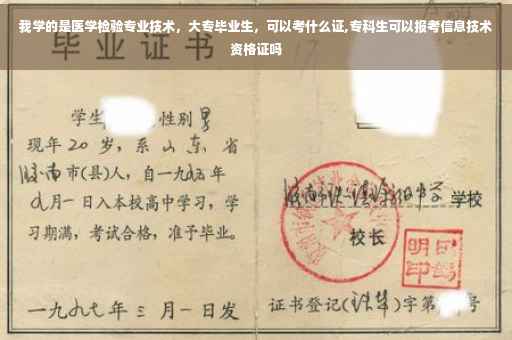 我学的是医学检验专业技术，大专毕业生，可以考什么证,专科生可以报考信息技术
资格证吗
毕业证书
学生 性别男
现年20岁，系山东省
临南市(县)人，自一九九五年
九月一日入本校高中学习，学
习期满，考试合格，准予毕业。
学校
校长
明日
印鸽
一九九七年三月一日发
证书登记( )字第 号